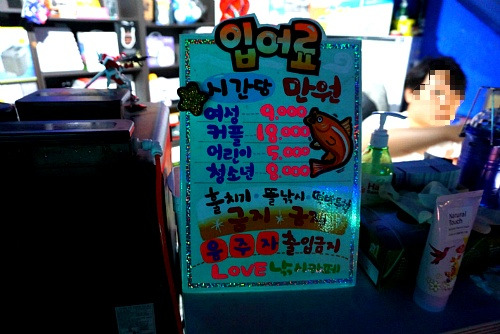 입어료
시간당 만원
여성 9,000
커플 18,000
어린이 5,000
청소년 8,000
훌치기·뜰낚시
금지 금지
음주자 출입금지
LOVE낚시카페
Natural
Touch